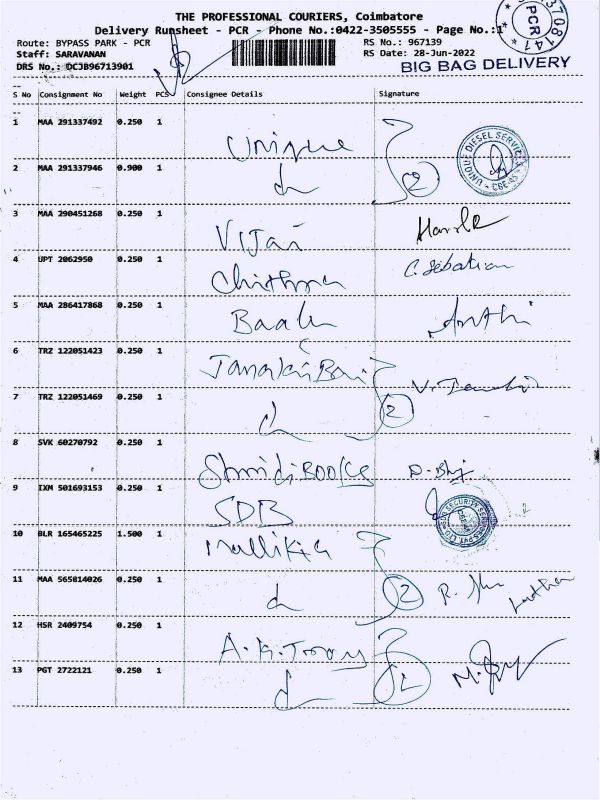 THE PROFESSIONAL COURIERS, Coimbatore
Delivery Runsheet - PCR - Phone No.:0422-3505555 - Page No.:1
Route: BYPASS PARK - PCR RS No.: 967139
Staff: SARAVANAN RS Date: 28-Jun-2022
DRS No.: DCJB96713901 BIG BAG DELIVERY
PCR
S No Consignment No Weight PCS Consignee Details Signature
1 MAA 291337492 0.250 1 Unique
UNIQUE DIESEL SERVICES
2 MAA 291337946 0.900 1 2
3 MAA 290451268 0.250 1 Vijai
4 UPT 2062950 0.250 1 C. Sebatian
5 MAA 286417868 0.250 1
6 TRZ 122051423 0.250 1 Janaki Bai
7 TRZ 122051469 0.250 1 2
8 SVK 60270792 0.250 1
9 IXM 501693153 0.250 1 SDB
10 BLR 165465225 1.500 1 Mallika
11 MAA 565814026 0.250 1 2
12 HSR 2409754 0.250 1
13 PGT 2722121 0.250 1 2